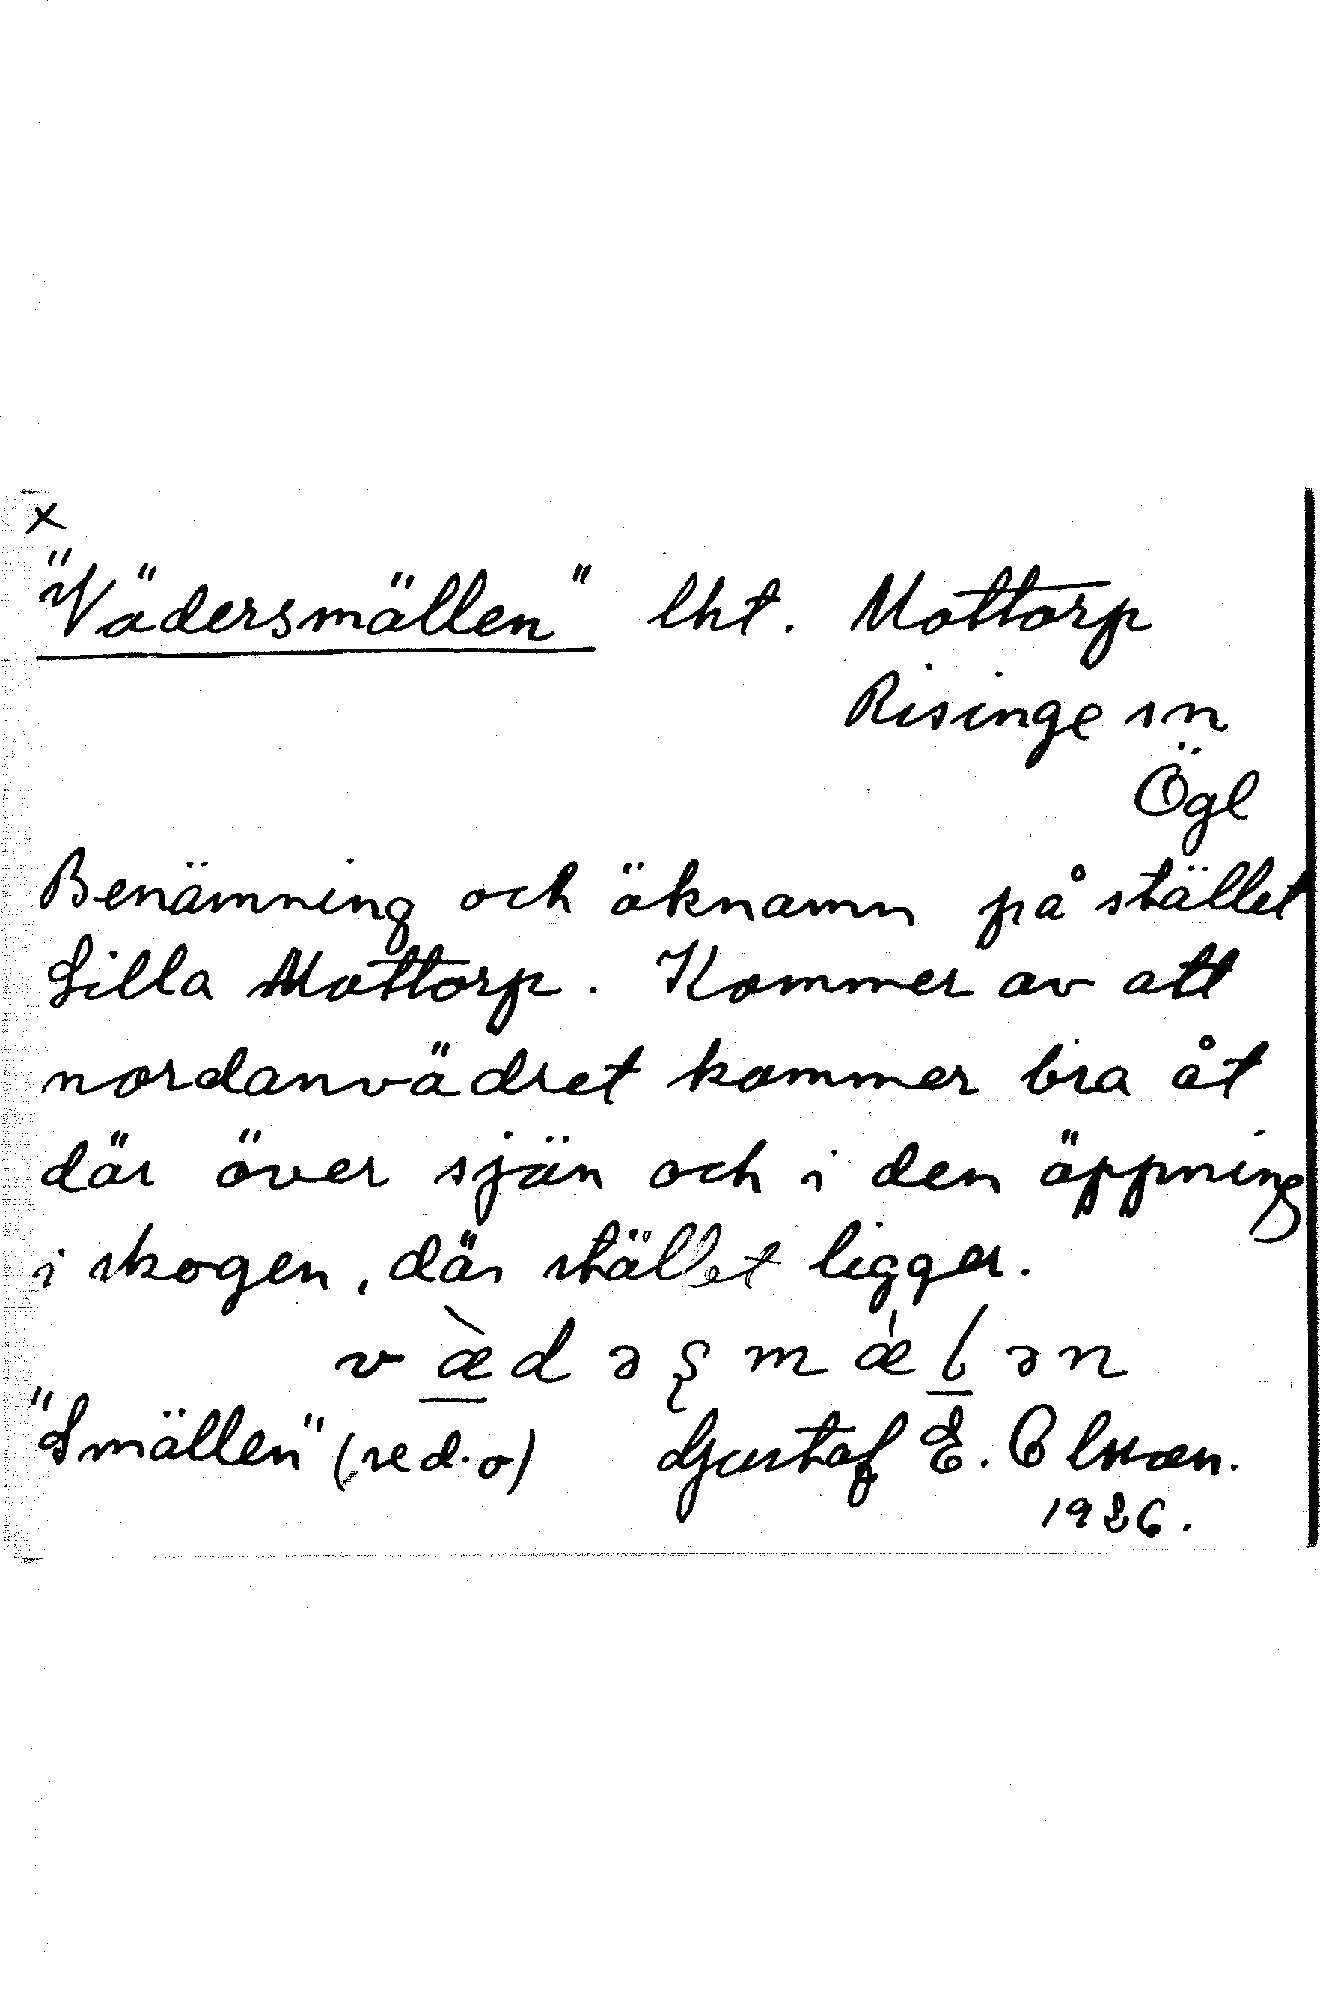 x
"Vädersmällen" lht. Mottorp
Risinge sn
Ögl
Benämning och öknamn på stället
Lilla Mottorp. Kommer av att
nordanvädret kommer bra åt
där över sjön och i den öppning
i skogen, där stället ligger.
v æ̀ d ə ʂ m ǽ l ə n
"Smällen" (red. o) Gustaf E. Olsson.
1926.